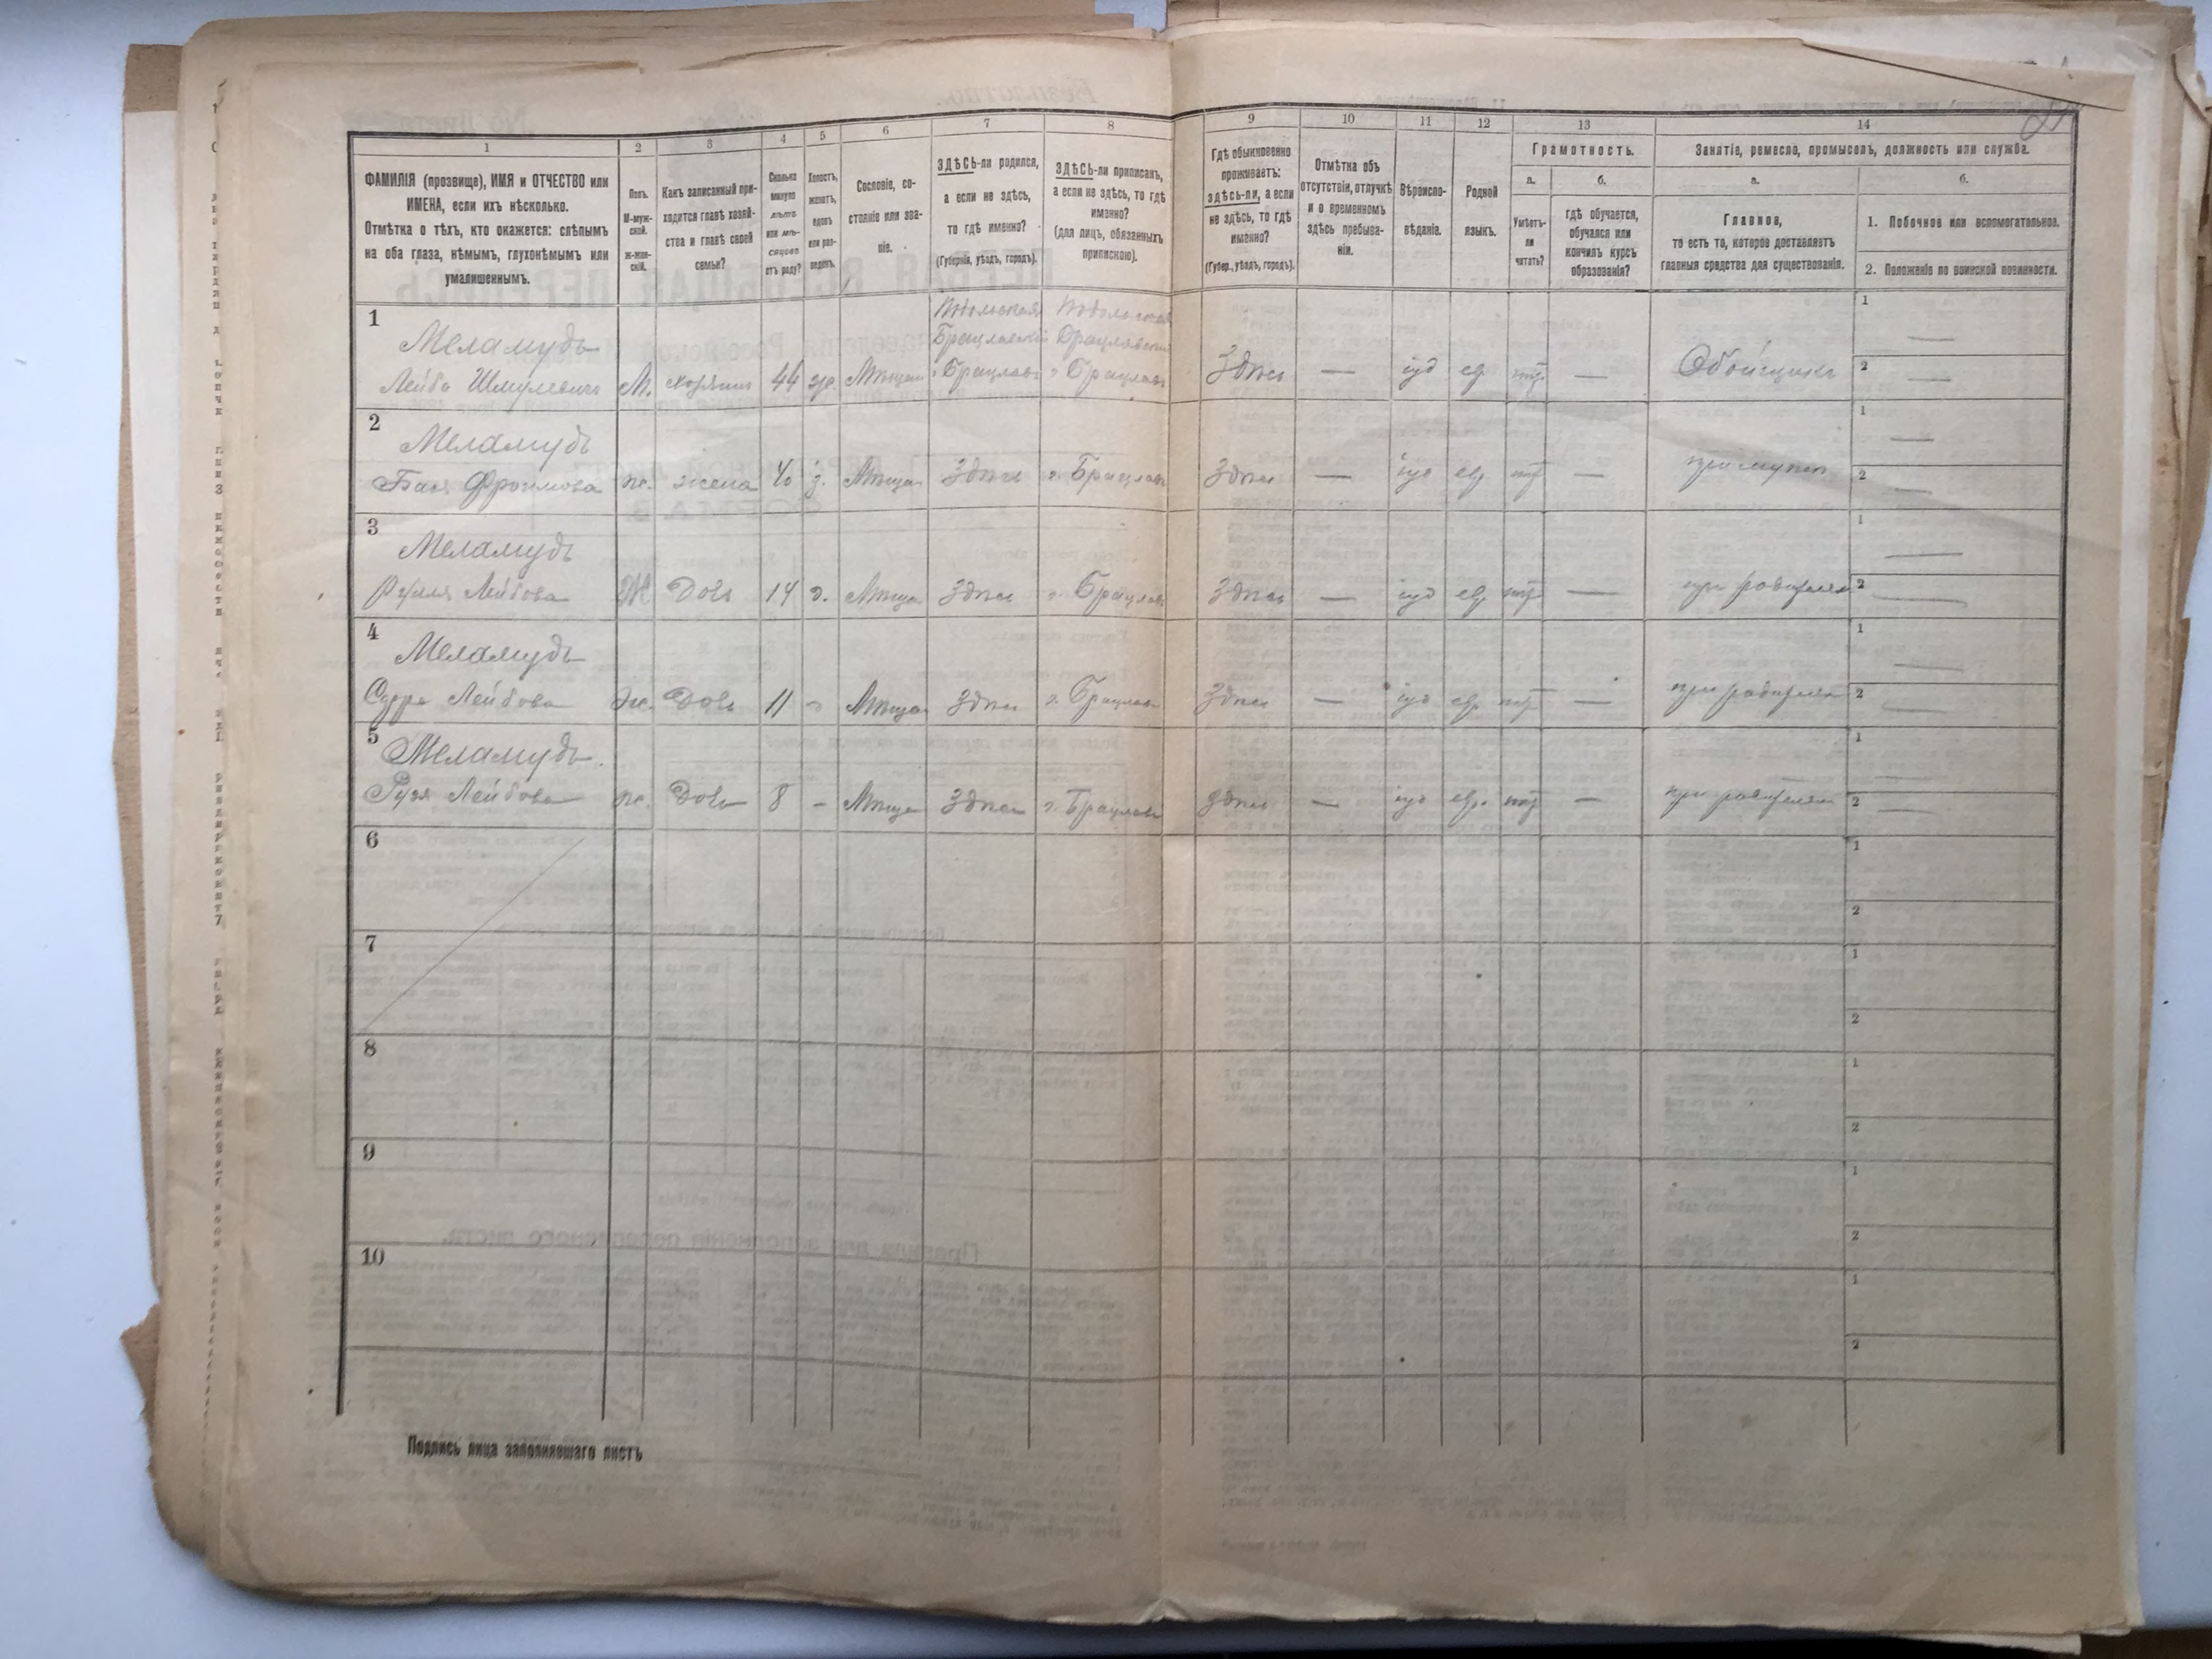 1 2 3 4 5 6 7 8 9 10 11 12 13 14
ФАМИЛІЯ (прозвище), ИМЯ и ОТЧЕСТВО или
ИМЕНА, если ихъ нѣсколько.
Отмѣтка о тѣхъ, кто окажется: слѣпымъ
на оба глаза, нѣмымъ, глухонѣмымъ или
умалишеннымъ.
Полъ.
М-муж-
ской.
Ж-жен-
скій.
Какъ записанный при-
ходится главѣ хозяй-
ства и главѣ своей
семьи?
Сколько
минуло
лѣтъ
или мѣ-
сяцевъ
отъ роду?
Холостъ,
женатъ,
вдовъ
или раз-
веденъ.
Сословіе, со-
стояніе или зва-
ніе.
ЗДѢСЬ-ли родился,
а если не здѣсь,
то гдѣ именно?
(Губернія, уѣздъ, городъ).
ЗДѢСЬ-ли приписанъ,
а если не здѣсь, то гдѣ
именно?
(для лицъ, обязанныхъ
припискою).
Гдѣ обыкновенно
проживаетъ:
здѣсь-ли, а если
не здѣсь, то гдѣ
именно?
(Губер., уѣздъ, городъ).
Отмѣтка объ
отсутствіи, отлучкѣ
и о временномъ
здѣсь пребыва-
ніи.
Вѣроиспо-
вѣданіе.
Родной
языкъ.
Грамотность.
а.
Умѣетъ-
ли
читать?
б.
гдѣ обучается,
обучался или
кончилъ курсъ
образованія?
Занятіе, ремесло, промыселъ, должность или служба.
а.
Главное,
то есть то, которое доставляетъ
главныя средства для существованія.
б.
1. Побочное или вспомогательное.
2. Положеніе по воинской повинности.
1
Подольская Подольская
Брацлавскій Брацлавскій
Меламудъ
Лейба Шмулевичъ М. хозяинъ 44 ж. Мѣщан г. Брацлавъ г. Брацлавъ Здѣсь — іуд ев — Обойщикъ
1 —
2 —
2
Меламудъ
Бася Фроимова ж. жена 40 з. Мѣщан Здѣсь г. Брацлавъ Здѣсь — іуд евр — при мужѣ
1 —
2 —
3
Меламудъ
Лейбова Ж Дочь 14 д. Мѣщан Здѣсь г. Брацлавъ Здѣсь — іуд евр — при родителях
1 —
2 —
4
Меламудъ
Сурра Лейбова Ж. Дочь 11 — Мѣщан Здѣсь г. Брацлавъ Здѣсь — іуд евр — при родителях
1 —
2 —
5
Меламудъ
Рузя Лейбова ж. Дочь 8 — Мѣщан Здѣсь г. Брацлавъ Здѣсь — іуд евр. — при родителях
1 —
2 —
6
1
2
7
1
2
8
1
2
9
1
2
10
1
2
Подпись лица заполнявшаго листъ